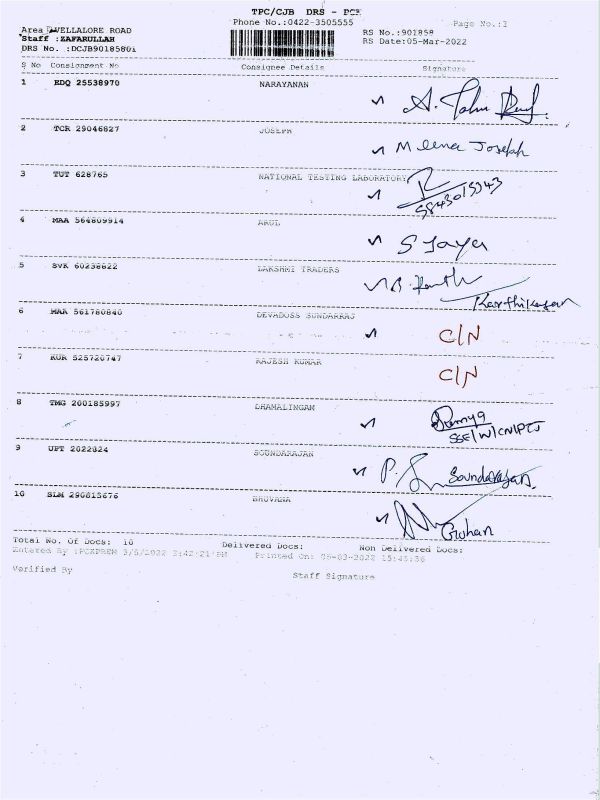 TPC/CJB DRS - PCR
Phone No.:0422-3505555
Page No.:1
Area :VELLALORE ROAD
RS No.:901858
Staff :ZAFARULLAH
RS Date:05-Mar-2022
DRS No. :DCJB9018580i
S No Consignment No Consignee Details Signature
1 EDQ 25538970 NARAYANAN
2 TCR 29046827 JOSEPH Meena Joseph
3 TUT 628765 NATIONAL TESTING LABORATORY
4 MAA 564809914 ARUL S Jaya
5 SVK 60238622 LAKSHMI TRADERS Karthikeyan
6 MAA 561780840 DEVADOSS SUNDARRAJ C/N
7 KUR 525720747 RAJESH KUMAR C/N
8 TMG 200185997 DHAMALINGAM Ramya
9 UPT 2022824 SOUNDARAJAN P. Soundarajan.
10 SLM 290815676 BHUVANA Guhan
Total No. Of Docs: 10 Delivered Docs: Non Delivered Docs:
Entered By :PCXPREM 3/5/2022 3:42:21 PM Printed On: 05-03-2022 15:45:36
Verified By
Staff Signature